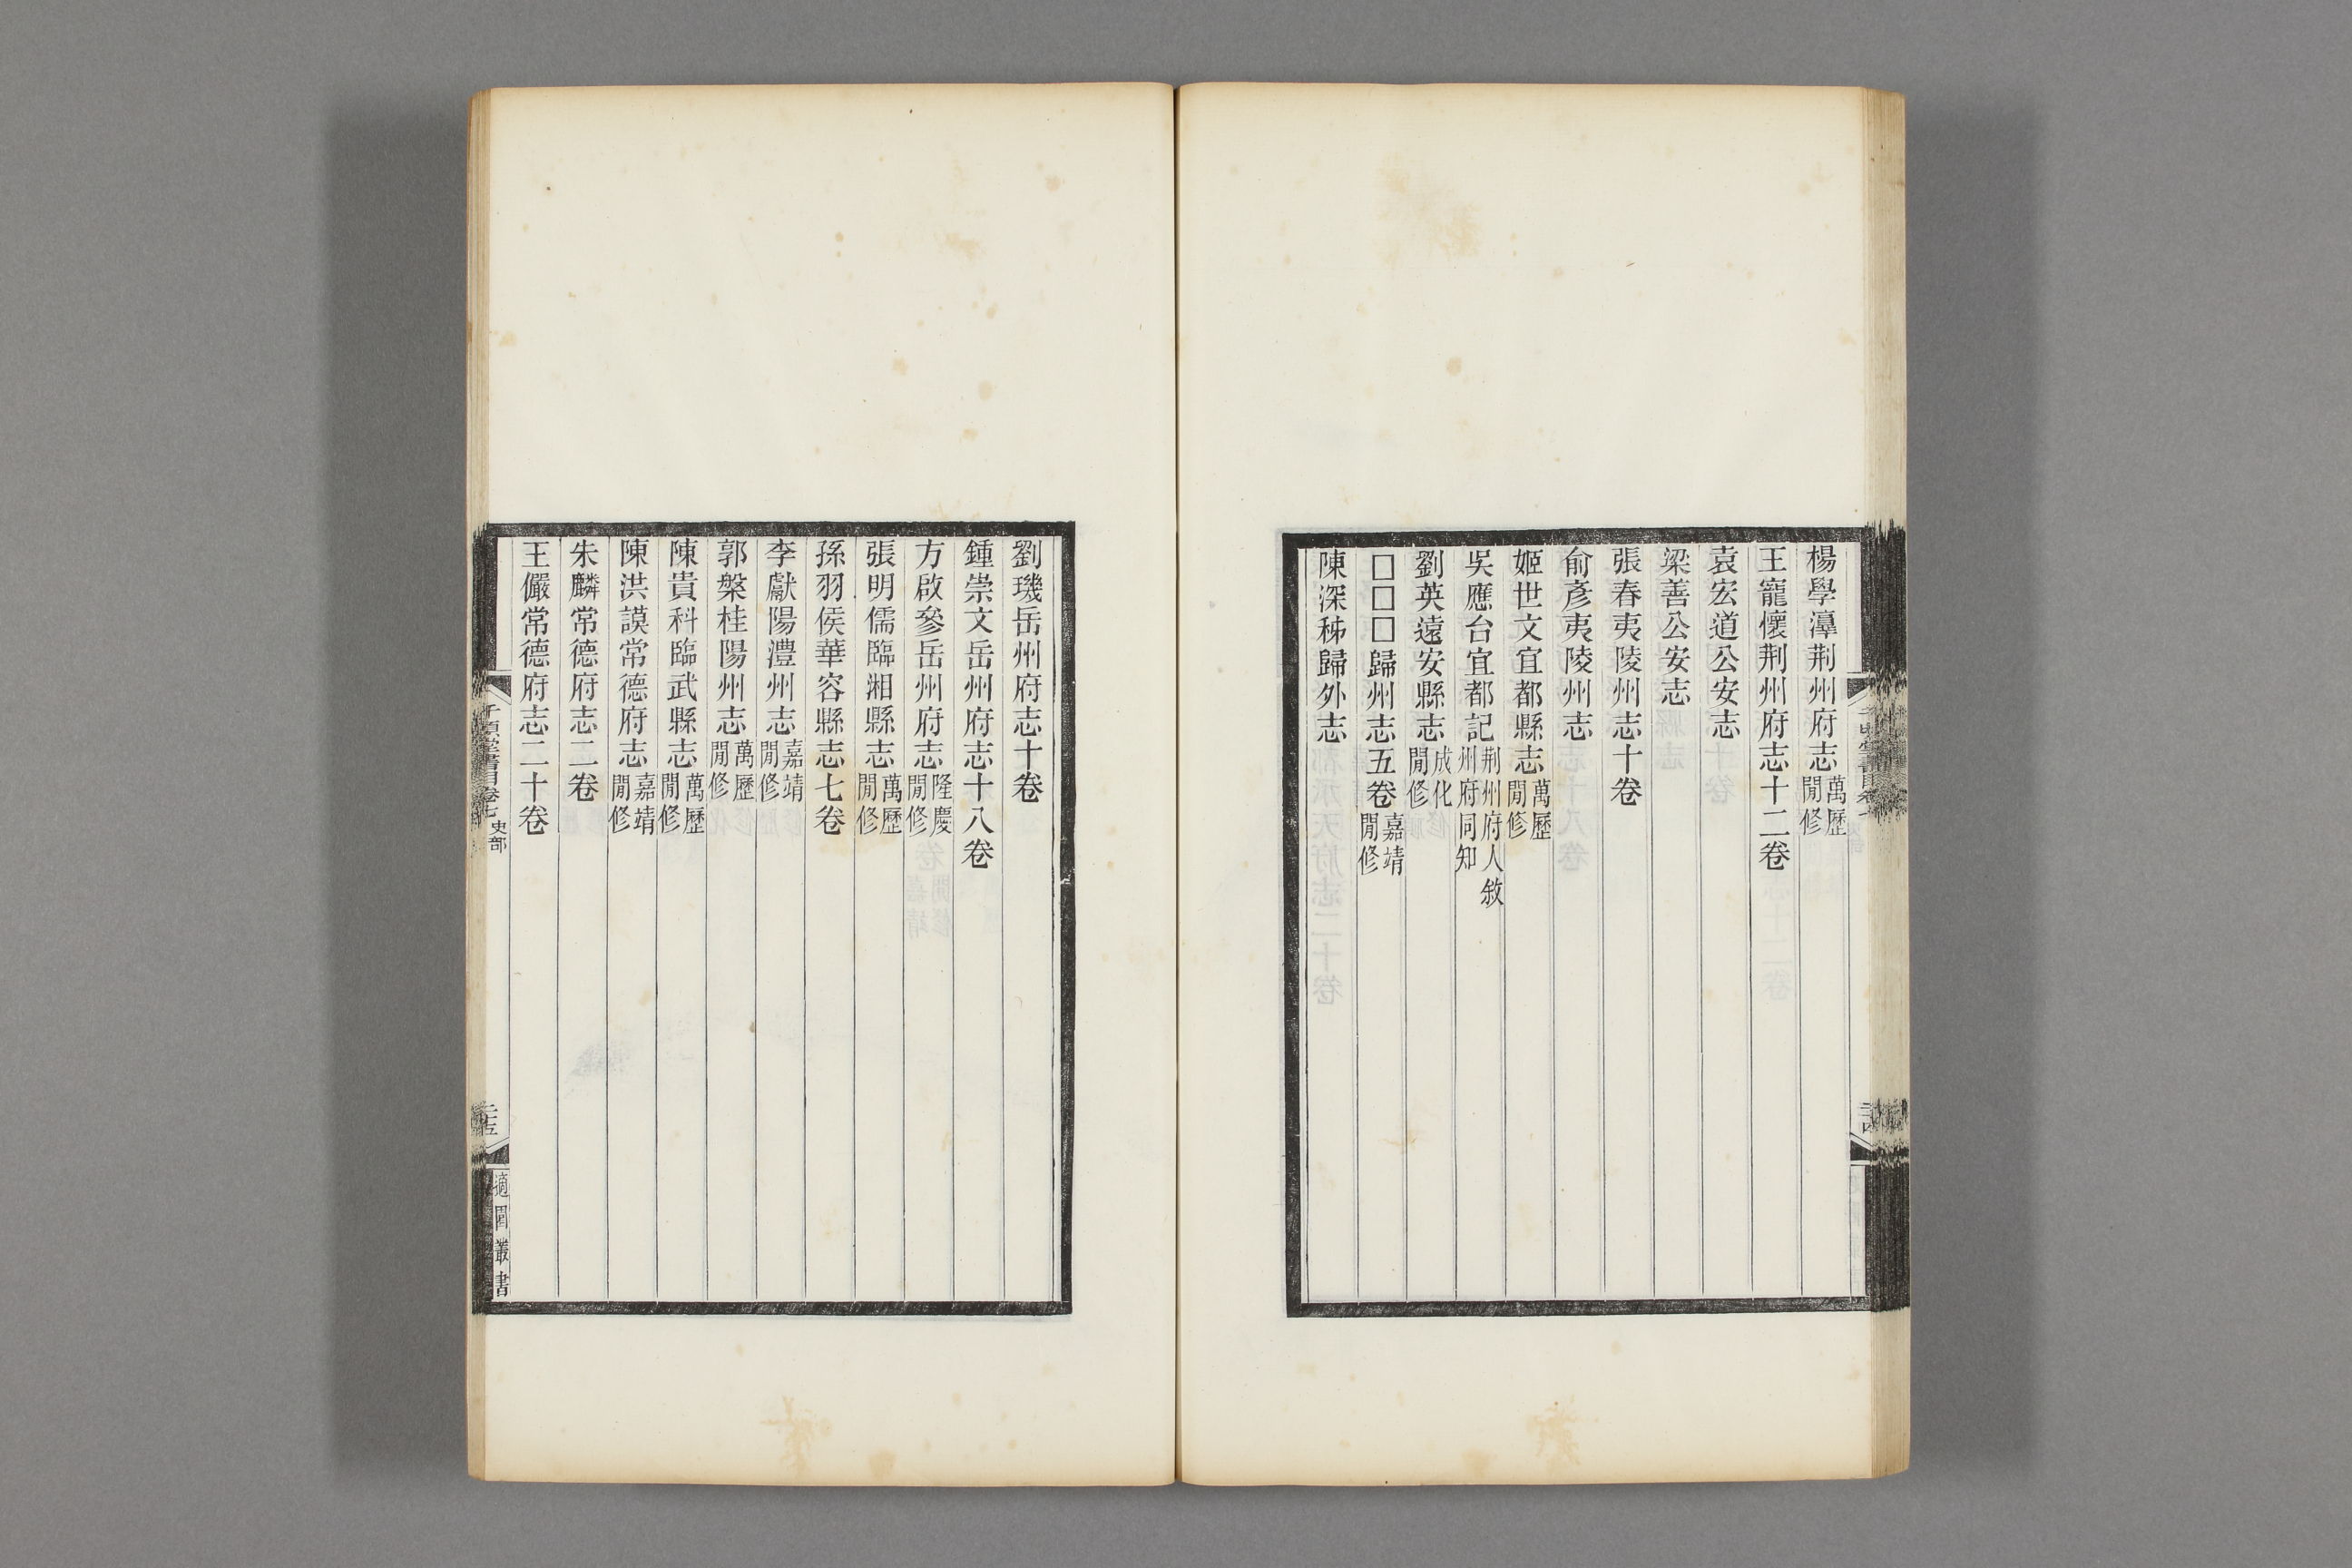 楊學濢荆州府志萬歷閒修
王寵懷荆州府志十二卷
袁宏道公安志
梁善公安志
張春夷陵州志十卷
俞彥夷陵州志
姬世文宜都縣志萬歷閒修
吳應台宜都記荆州府人敘州府同知
劉英遠安縣志成化閒修
□□□歸州志五卷嘉靖閒修
陳深秭歸外志
劉璣岳州府志十卷
鍾崇文岳州府志十八卷
方啟參岳州府志隆慶閒修
張明儒臨湘縣志萬歷閒修
孫羽侯華容縣志七卷
李獻陽澧州志嘉靖閒修
郭槃桂陽州志萬歷閒修
陳貴科臨武縣志萬歷閒修
陳洪謨常德府志嘉靖閒修
朱麟常德府志二卷
王儼常德府志二十卷
千頃堂書目卷七 史部
二十五
適園叢書